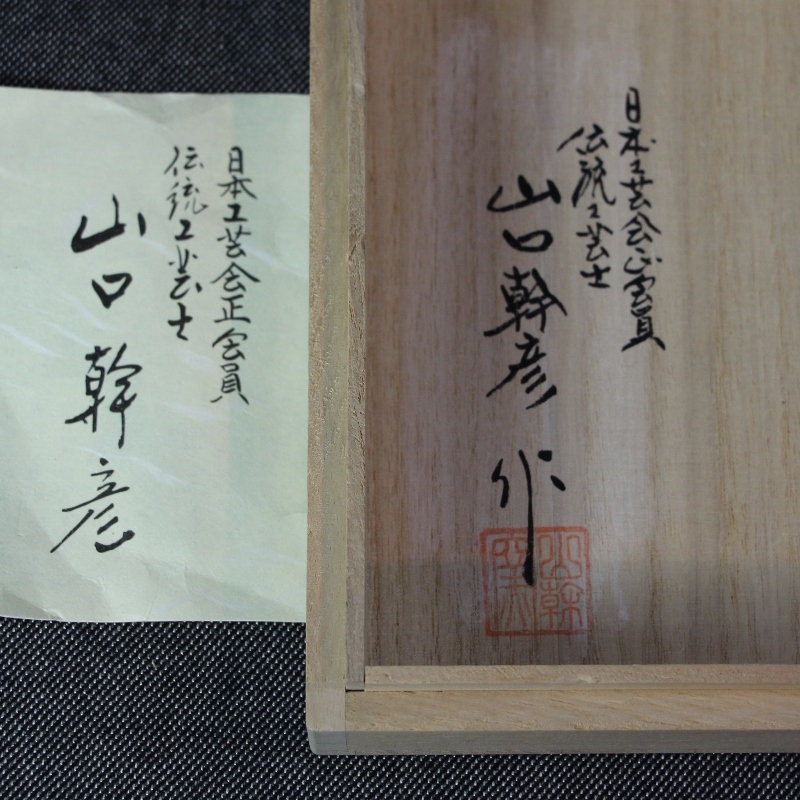 日本工芸会正会員
伝統工芸士
山口幹彦
日本工芸会正会員
伝統工芸士
山口幹彦作